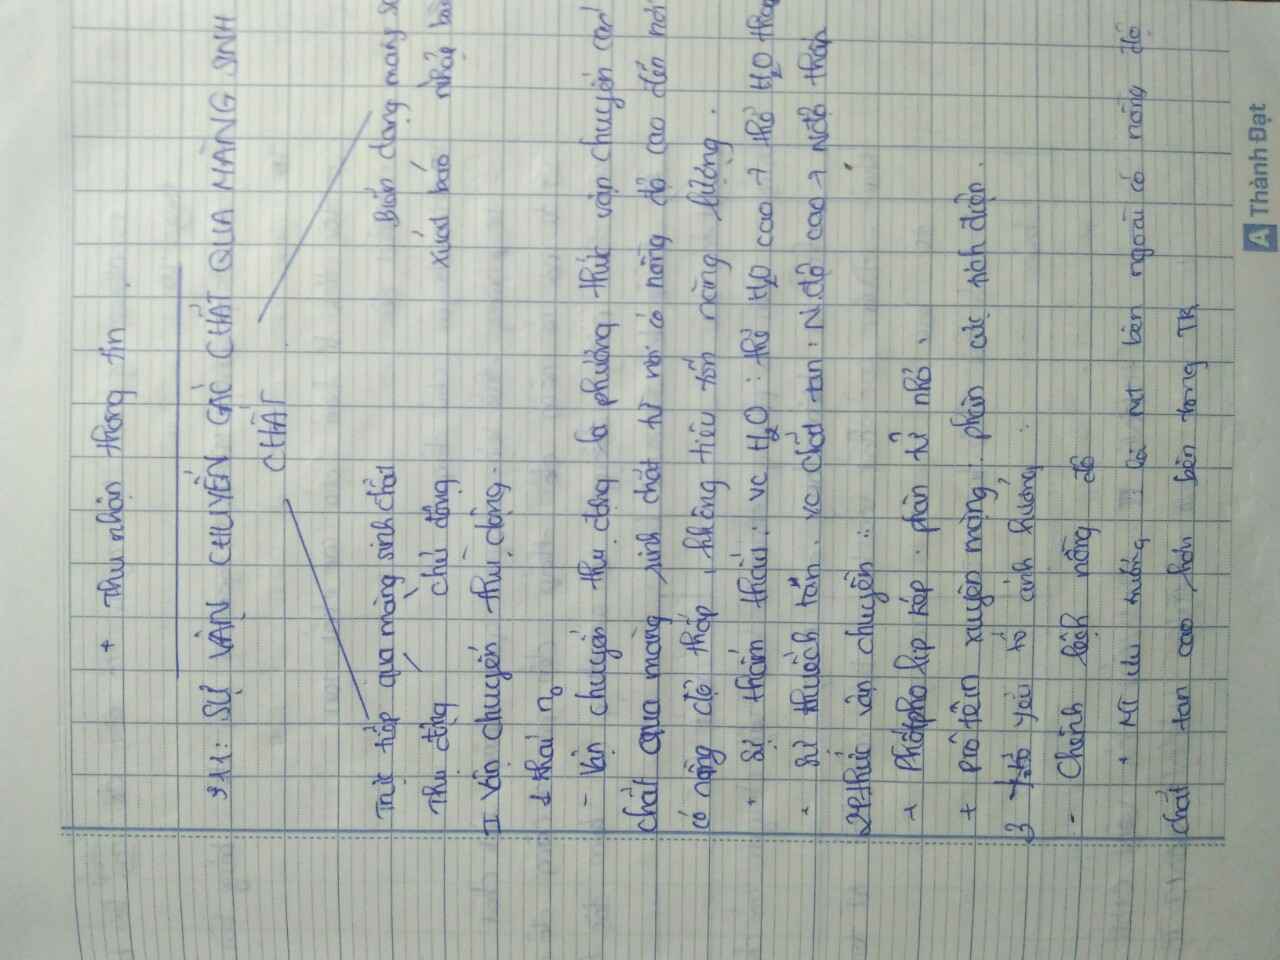 + Thu nhận thông tin
§11: SỰ VẬN CHUYỂN CÁC CHẤT QUA MÀNG SINH
CHẤT
Trực tiếp qua màng sinh chất
Biến dạng màng
Thụ động chủ động
xuất bào nhập
I Vận chuyển thụ động.
1 Khái n
- Vận chuyển thụ động là phương thức vận chuyển các
chất qua màng sinh chất từ nơi có nồng độ cao đến nơi
có nồng độ thấp, không tiêu tốn năng lượng.
+ Sự thẩm thấu: vc H2O: thế H2O cao → thế H2O thấp
+ Sự khuếch tán: vc chất tan: N.độ cao → N.độ thấp
2 P.thức vận chuyển:
+ Phôtpho lip kép: phân tử nhỏ.
+ prôtêin xuyên màng: phân cực, tích điện.
3 yếu tố ảnh hưởng:
- Chênh lệch nồng độ
+ MT ưu trương: là mt bên ngoài có nồng độ
chất tan cao hơn bên trong TB
A Thành Đạt